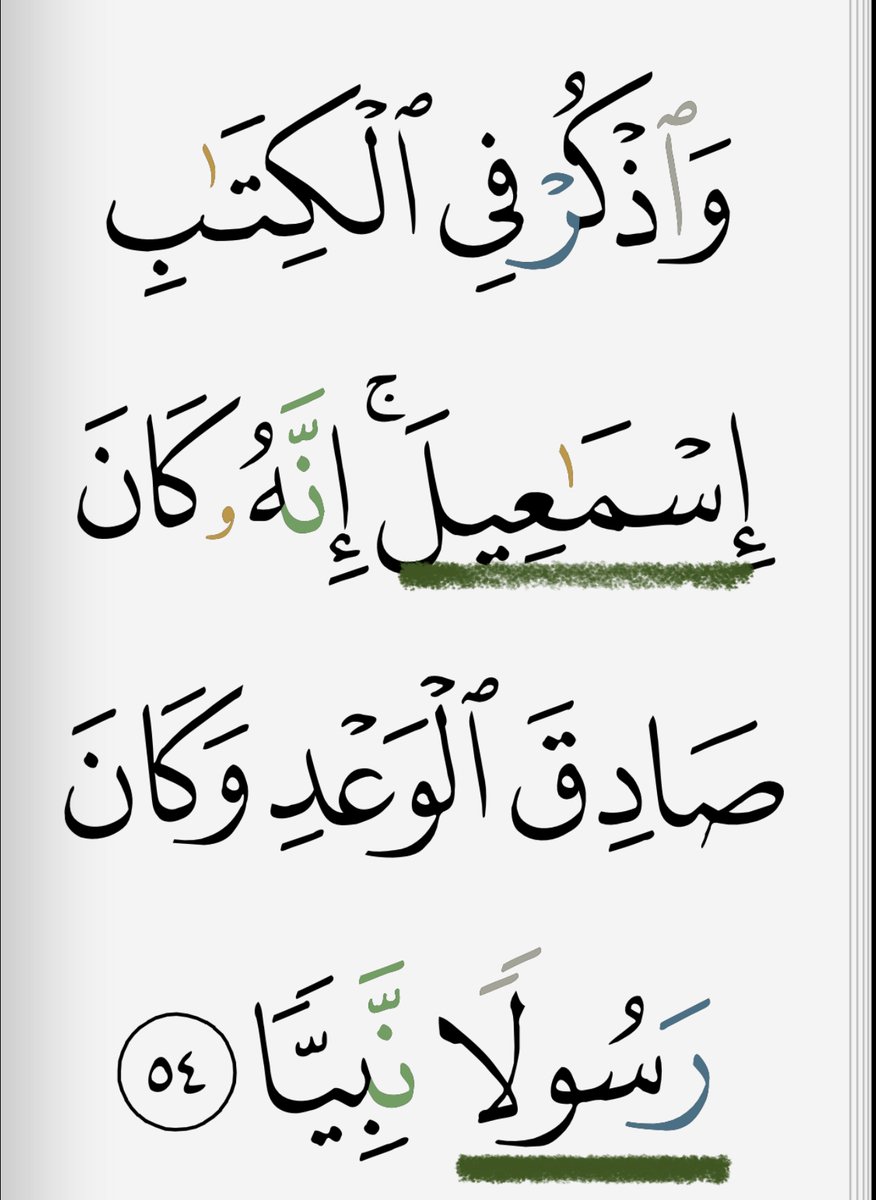 وَٱذۡكُرۡ فِي ٱلۡكِتَٰبِ
إِسۡمَٰعِيلَۚ إِنَّهُۥ كَانَ
صَادِقَ ٱلۡوَعۡدِ وَكَانَ
رَسُولٗا نَّبِيّٗا ٥٤